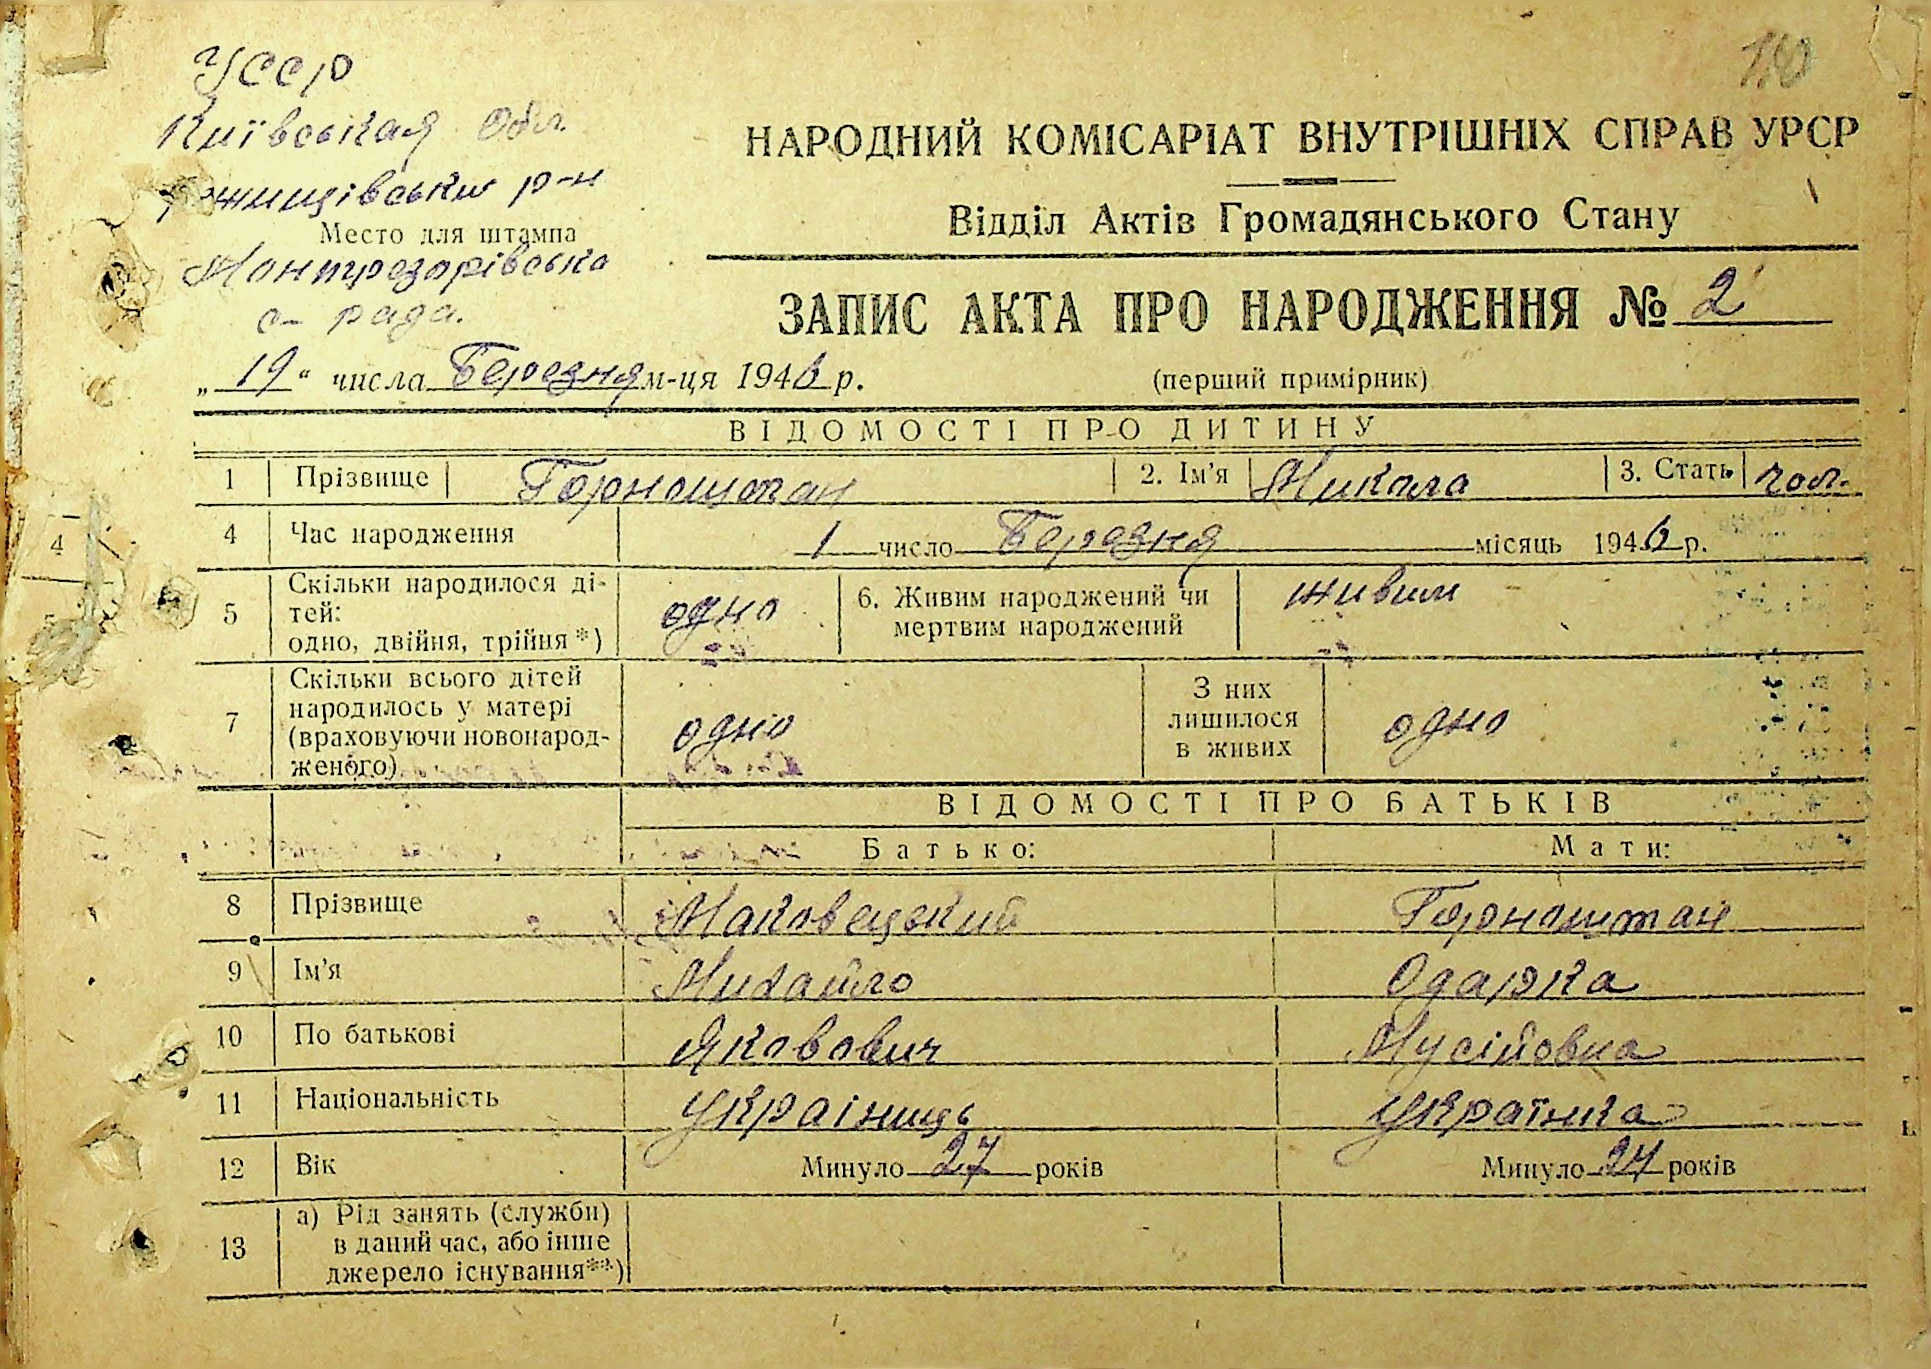 УССР
Київськая Обл.
Ржищівськи р-н
Место для штампа
с- рада.
10
НАРОДНИЙ КОМІСАРІАТ ВНУТРІШНІХ СПРАВ УРСР
Відділ Актів Громадянського Стану
ЗАПИС АКТА ПРО НАРОДЖЕННЯ № 2
„ 19 “ числа Березня м-ця 1946 р.
(перший примірник)
ВІДОМОСТІ ПРО ДИТИНУ
1 Прізвище Горноштан 2. Ім'я Микола 3. Стать чол.
4 Час народження 1 число Березня місяць 1946 р.
5 Скільки народилося ді-
тей:
одно, двійня, трійня *)
одно
6. Живим народжений чи
мертвим народжений
живим
7 Скільки всього дітей
народилось у матері
(враховуючи новонарод-
женого)
одно
З них
лишилося
в живих
одно
ВІДОМОСТІ ПРО БАТЬКІВ
Батько: Мати:
8 Прізвище Маковецький Горноштан
9 Ім'я Михайло Одарка
10 По батькові Якович Мусійовна
11 Національність Українець Українка
12 Вік Минуло 27 років Минуло 24 років
13 а) Рід занять (служби)
в даний час, або інше
джерело існування**)
4
5